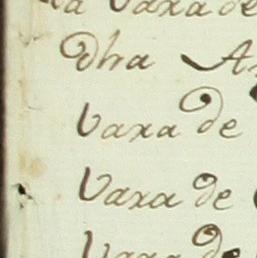 la Vaxa de
dha
Vaxa de
Vaxa de
Vaxa de